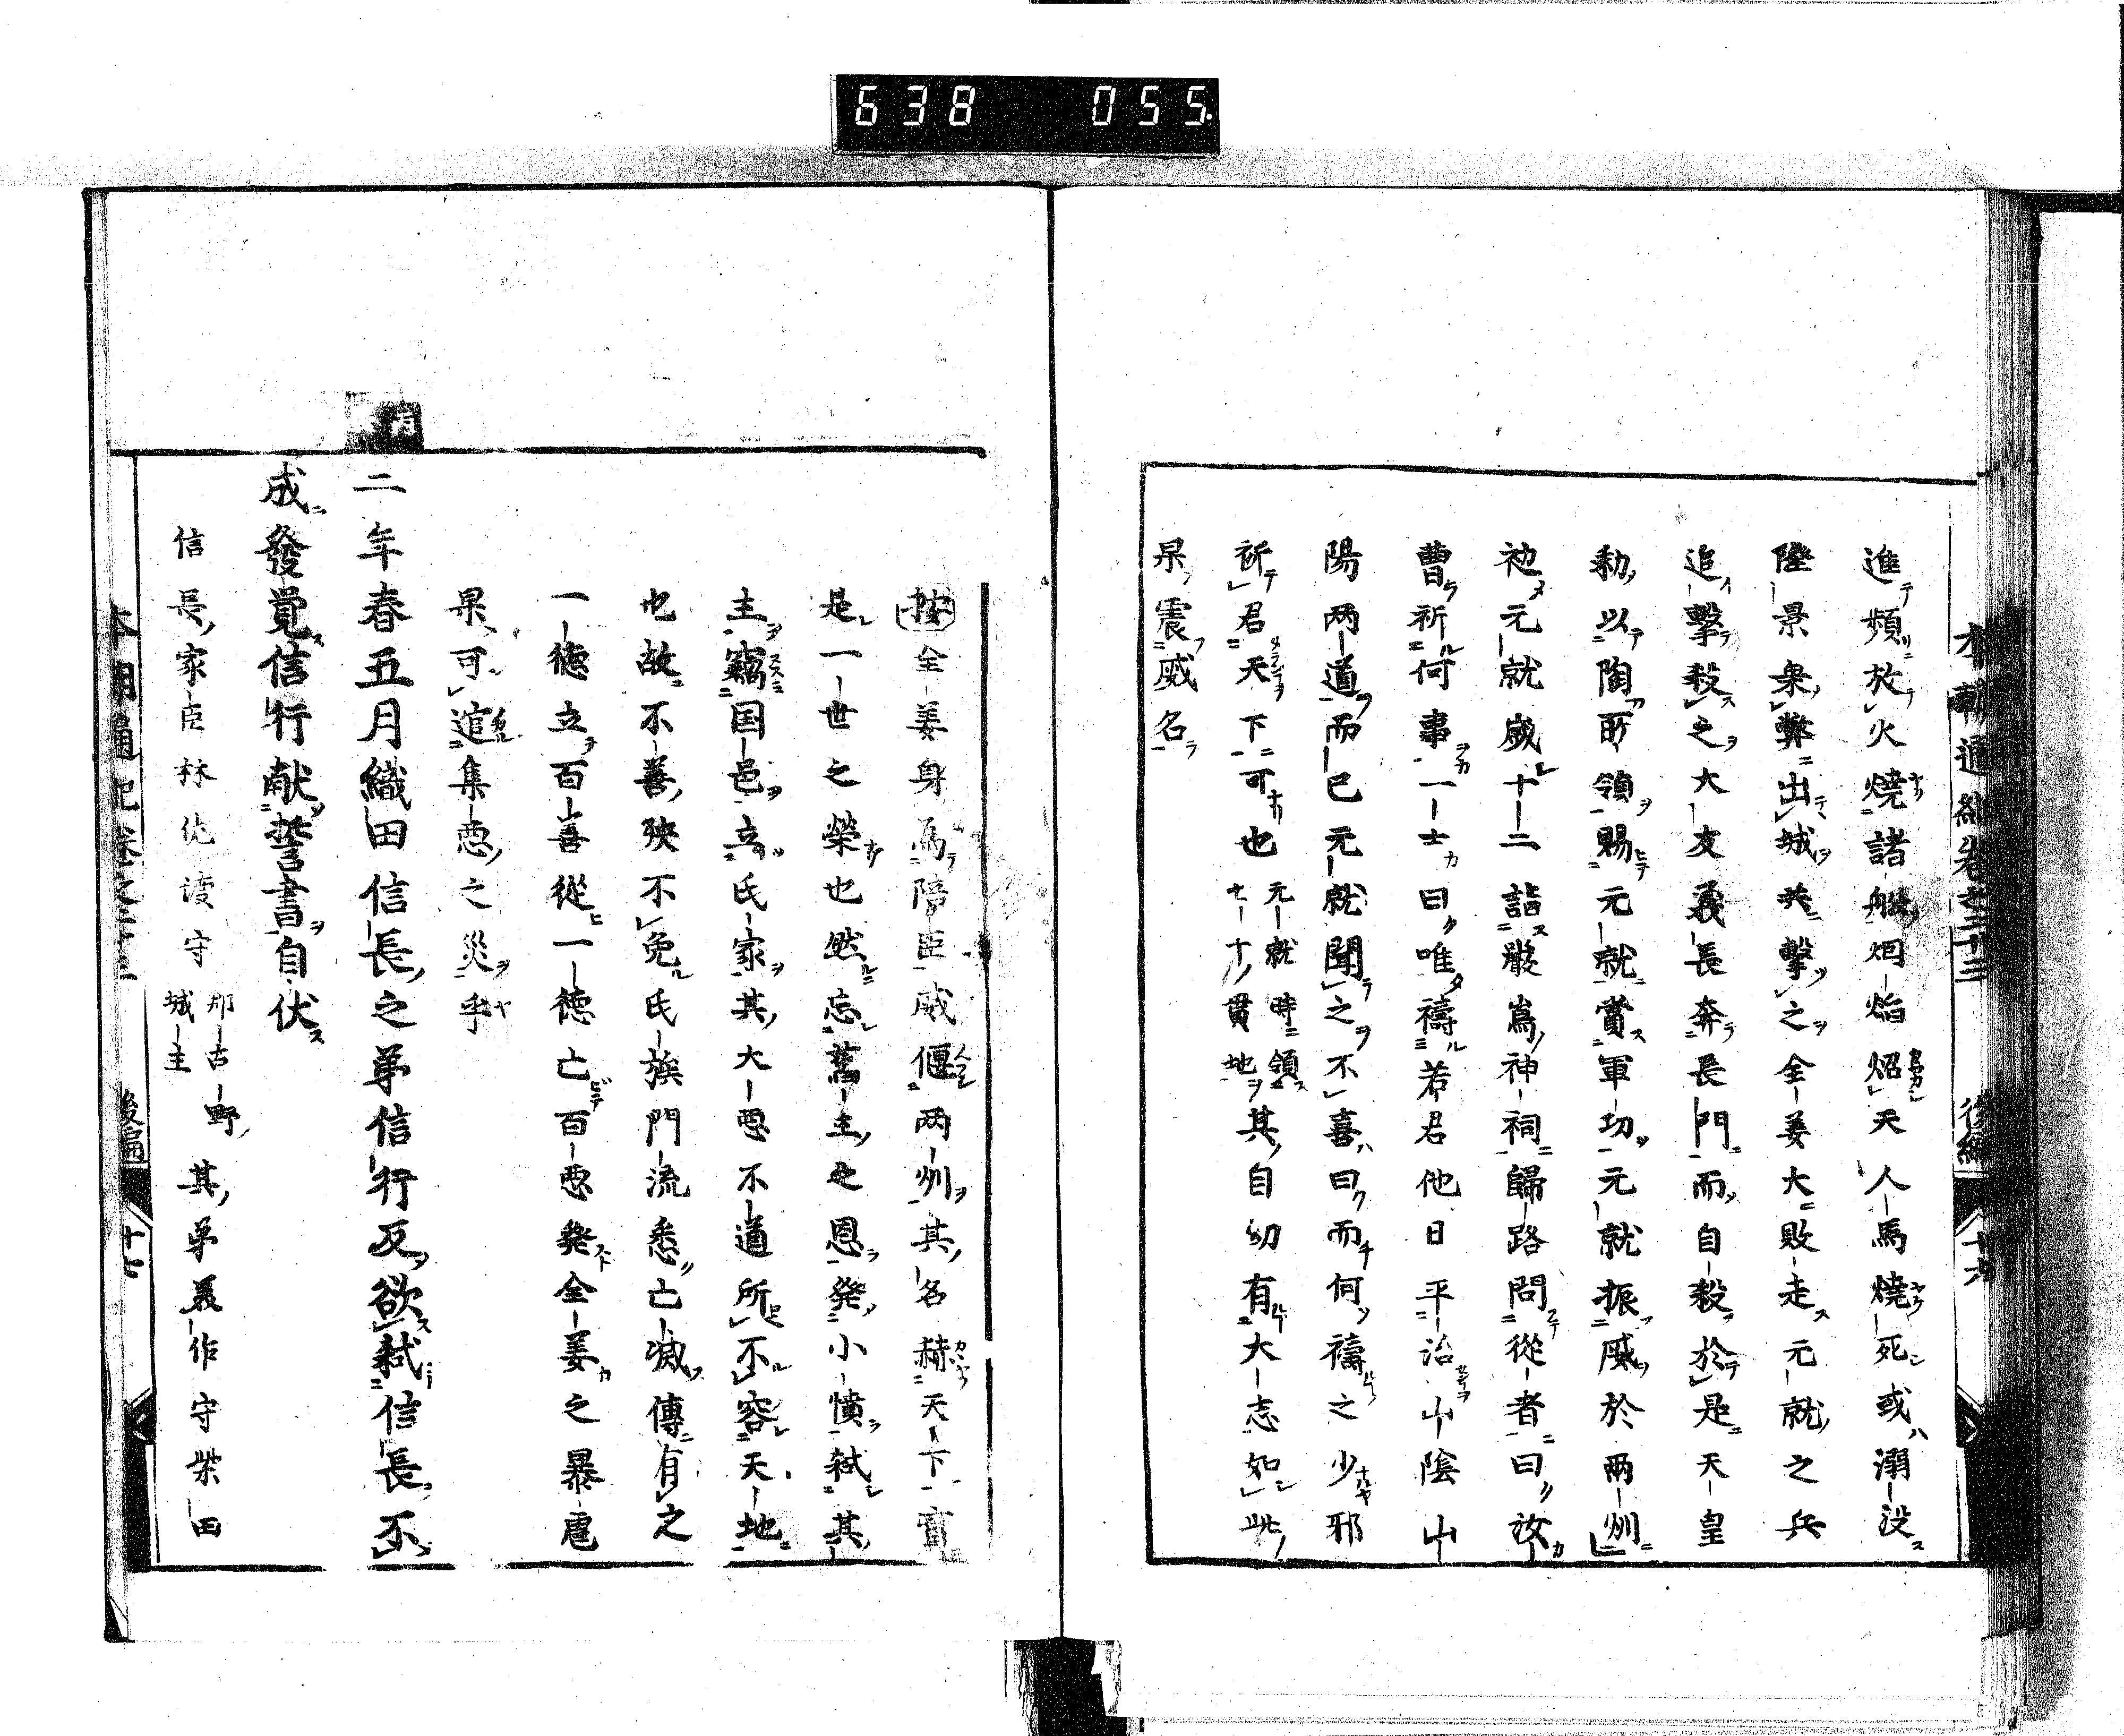 638 055
本朝通紀卷之二十三 後編 十六
進頻放火燒諸船烟焰炤天人馬燒死或溺没
隆景衆弊出城共擊之全姜大敗走元就之兵
追擊殺之大友義長奔長門而自殺於是天皇
勅以陶所領賜元就賞軍功元就振威於兩州
初元就歲十二詣嚴嶌神祠歸路問從者曰汝
曹祈何事一士曰唯禱若君他日平治山陰山
陽两道而已元就聞之不喜曰而何禱之少邪
祈君天下可也
元就時領
七十貫地
其自幼有大志如此
果震威名
按全姜身爲陪臣威偃两州其名赫天下實
是一世之榮也然忘舊主之恩発小憤弑其
主竊国邑立氏家其大惡不道所不容天地
也故不善殃不免氏族門流悉亡滅傳有之
一德立百善從一德亡百惡発全姜之暴虐
果可逭集惡之災乎
二年春五月織田信長之弟信行反欲弑信長不
成發覚信行献誓書自伏
信長家臣林佐渡守
那古野
城主
其弟義作守柴田
本朝通紀卷之二十三 後編 十七